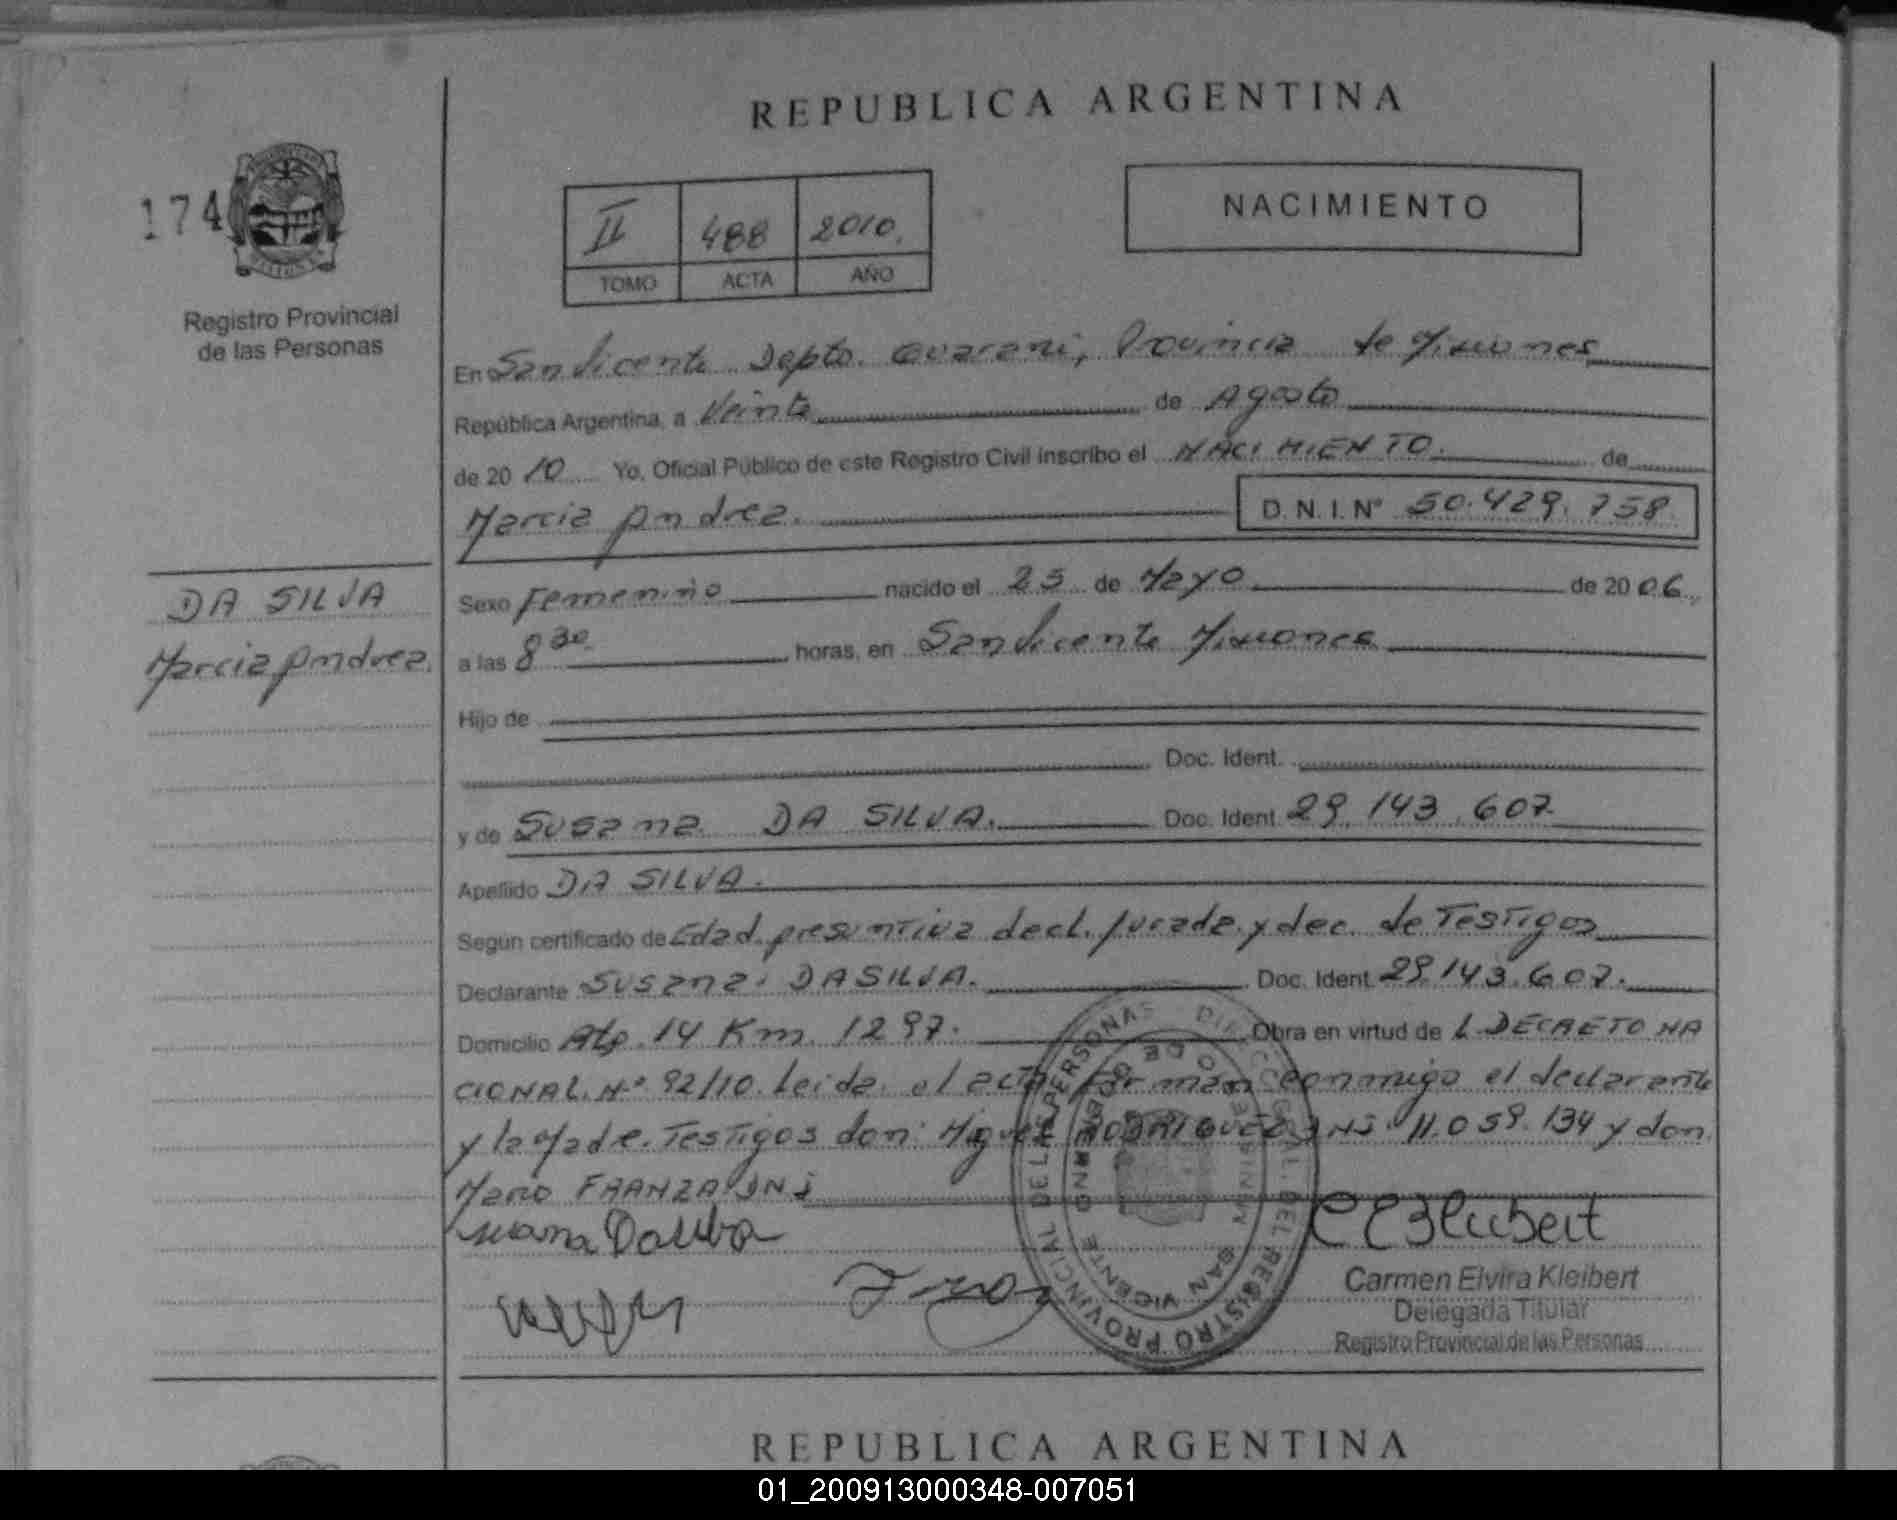 REPUBLICA ARGENTINA
174
NACIMIENTO
II 488 2010.
TOMO ACTA AÑO
Registro Provincial
de las Personas
En San Vicente Depto. Guarani, Provincia de Misiones
República Argentina, a Veinte de Agosto
de 2010 Yo, Oficial Público de este Registro Civil inscribo el NACIMIENTO. de
Marcia Andrea. D.N.I.Nº 50.429.758
DA SILVA
Marcia Andrea.
Sexo Femenino nacido el 25 de Mayo de 2006.
a las 8 30 horas, en San Vicente Misiones
Hijo de
Doc. Ident.
y de Susana DA SILVA. Doc. Ident. 29.143.607.
Apellido DA SILVA.
Según certificado de Edad presuntiva decl. jurada. y dec. de Testigos
Declarante Susana. DA SILVA. Doc. Ident. 29.143.607.
Domicilio 14 Km. 1297. Obra en virtud de L DECRETO NA
CIONAL. Nº 92/10. Leida el acta, firman conmigo el declarante
y la Madre. Testigos don: Miguel RODRIGUEZ DNI 11.059.134 y don
Mario FRANZA DNI
Carmen Elvira Kleibert
Delegada Titular
Registro Provincial de las Personas
DIRECC GRAL. DEL REGISTRO PROVINCIAL DE LAS PERSONAS
SAN VICENTE
REPUBLICA ARGENTINA
01_200913000348-007051